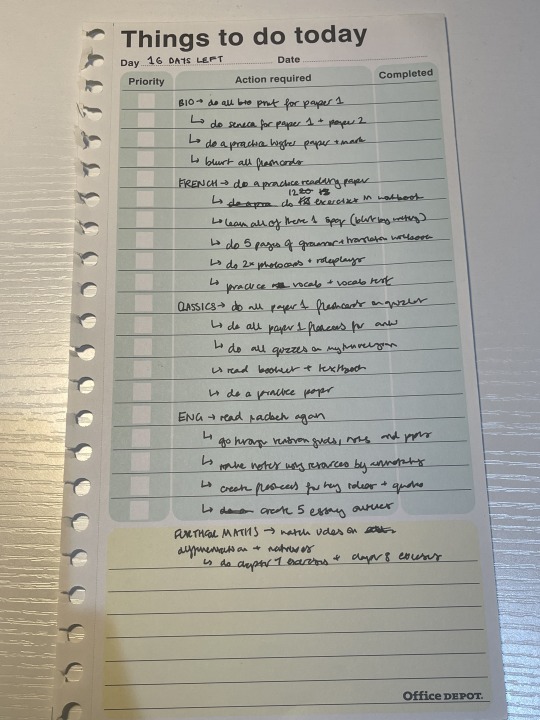 Things to do today
Day 16 DAYS LEFT Date
Priority Action required Completed
BIO → do all bio for paper 1
↳ do seneca for paper 1 + paper 2
↳ do a practice higher paper + mark
↳ blurt all flashcards
FRENCH → do a practice reading paper
↳ do exercises in workbook
↳ learn all of theme 1 (blurt by writing)
↳ do 5 pages of grammar + translation workbook
↳ do 2x photocards + roleplays
↳ practice vocab + vocab test
CLASSICS → do all paper 1 flashcards on quizlet
↳ do all paper 1 for
↳ do all quizzes on
↳ read booklet + textbook
↳ do a practice paper
ENG → read packet again
↳ go through revision guides, and ppts
↳ make notes using resources by annotating
↳ create flashcards for key ideas + quotes
↳ create 5 essay
FURTHER MATHS → watch videos on
differentiation + matrices
↳ do chapter 7 exercises + chapter 8 exercises
Office DEPOT.